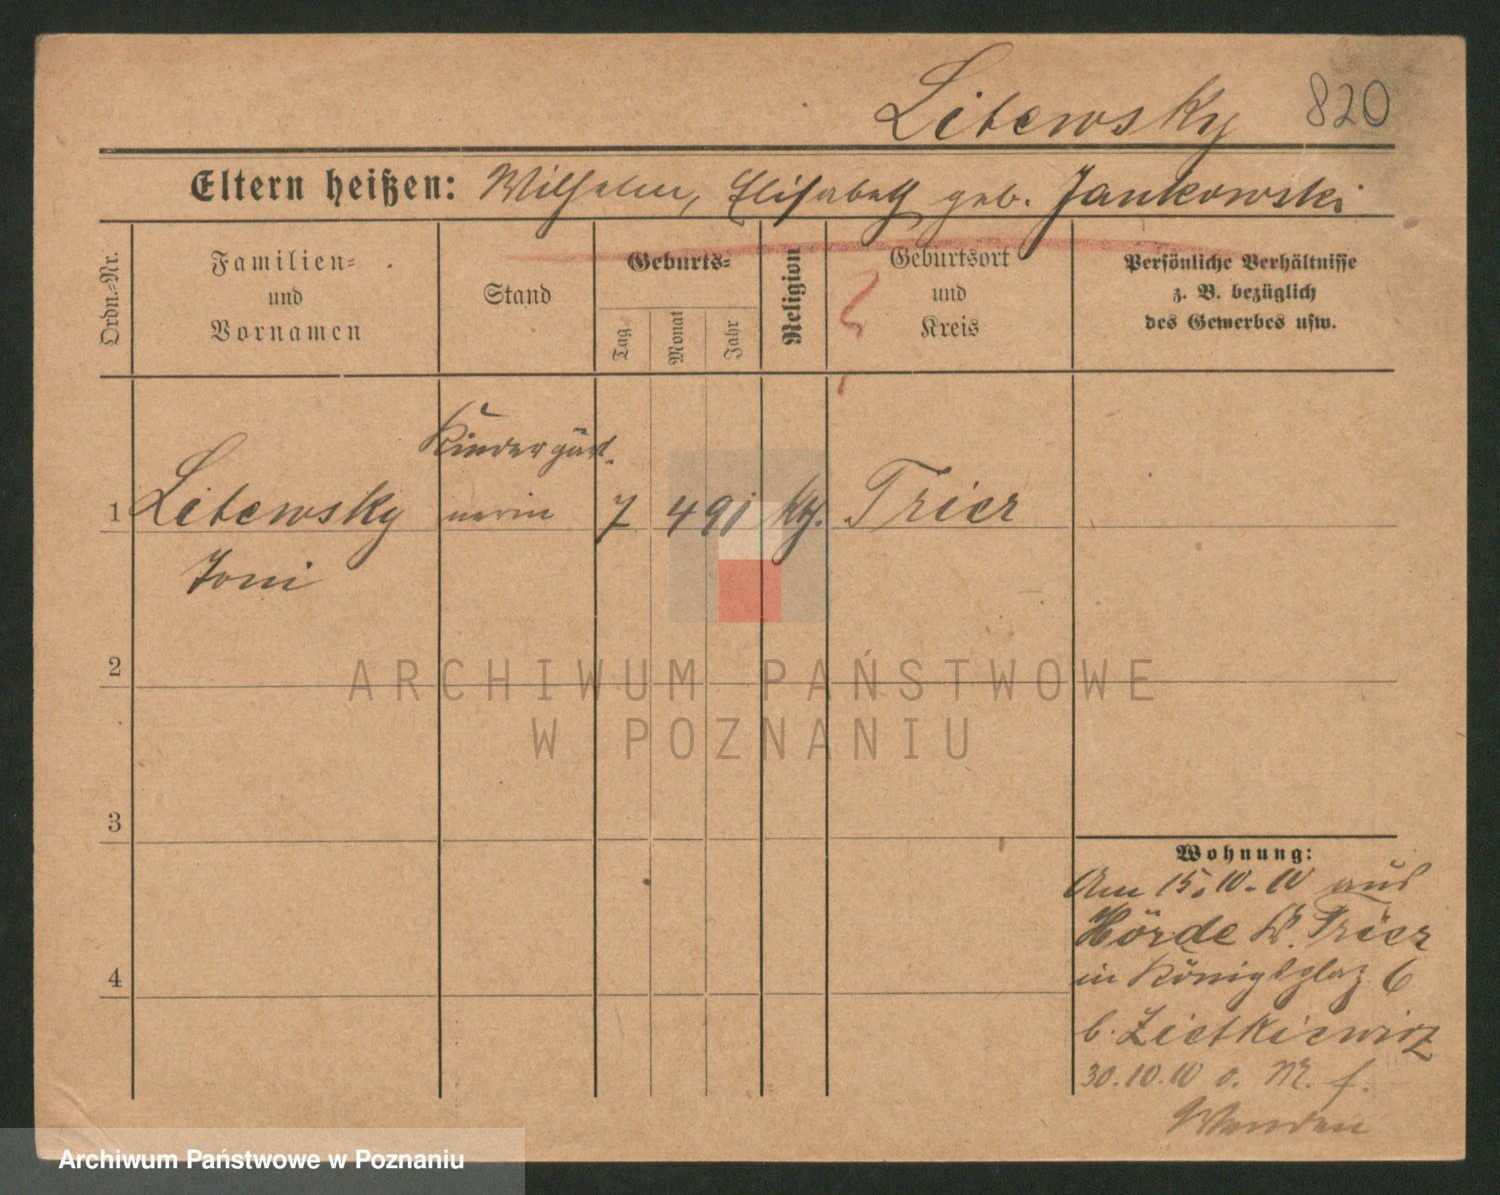 Litewsky 820
Eltern heißen: Wilhelm, Elisabeth geb. Jankowski
Ordn.=Nr.
Familien=
und
Vornamen
Stand
Geburts=
Tag
Monat
Jahr
Religion
Geburtsort
und
Kreis
Persönliche Verhältnisse
z. B. bezüglich
des Gewerbes usw.
Kindergärt-
1 Litewsky nerin 7 4 91 kth. Trier
Toni
2
3
4
Wohnung:
Am 15. 10. 10 aus
Hörde K. Trier
in Königsplaz 6
b. Zietkiewicz
30.10.10 o. M. f.
ARCHIWUM PAŃSTWOWE
W POZNANIU
Archiwum Państwowe w Poznaniu